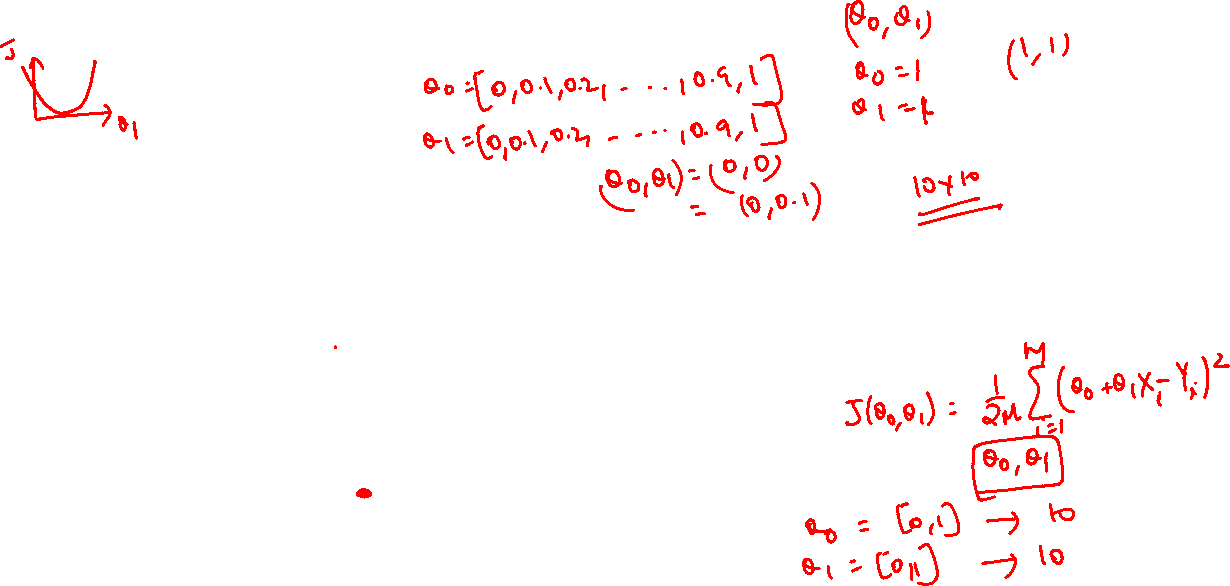 J
θ1
θ0 = [0, 0.1, 0.2, - - - -, 0.9, 1]
θ1 = [0, 0.1, 0.2, - - - -, 0.9, 1]
(θ0, θ1) = (0, 0)
= (0, 0.1)
(θ0, θ1)
θ0 = 1
θ1 = 1
(1, 1)
10 × 10
J(θ0, θ1) = 1/2M Σ_{i=1}^{M} (θ0 + θ1 Xi - Yi)²
θ0, θ1
θ0 = [0, 1] → 10
θ1 = [0, 1] → 10